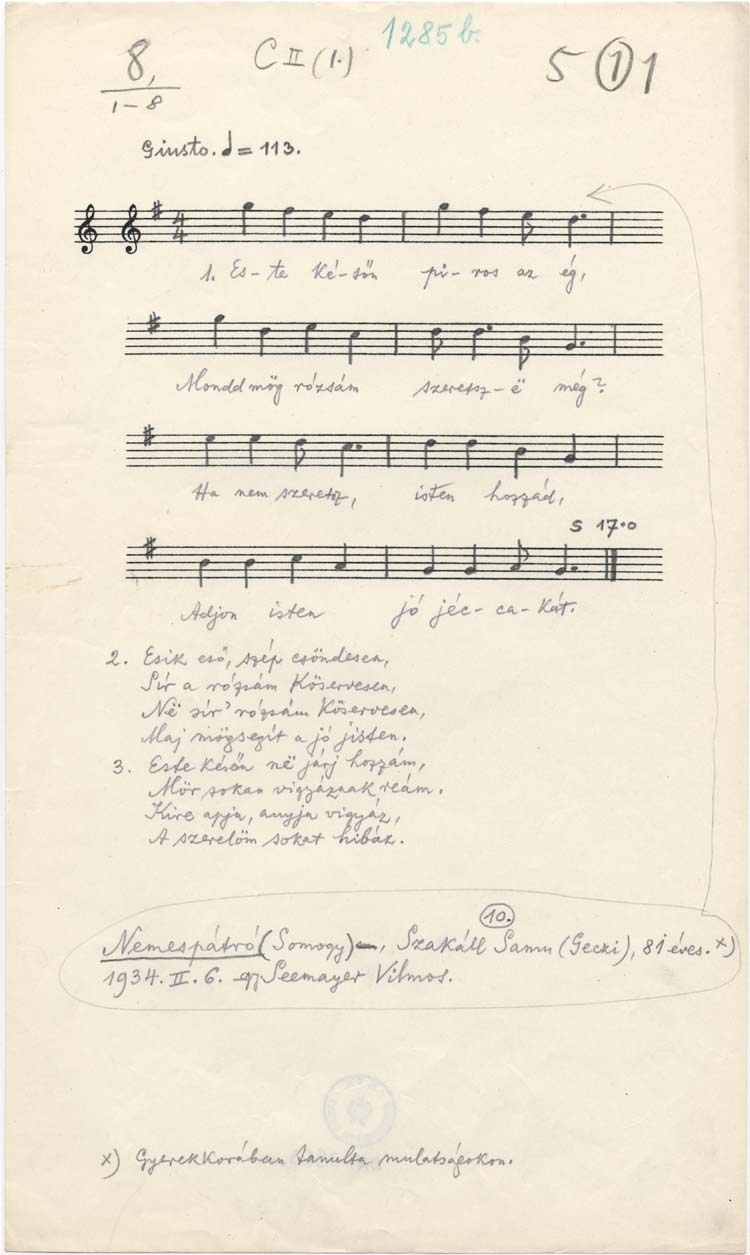 1285 b.
8,
1-8
C II (1.)
5 ① 1
Giusto. ♩= 113.
1. Es- te ké-sőn pi- ros az ég,
Mondd mög rózsám szeretsz-ë még?
Ha nem szeretsz, isten hozzád,
S 17.0
Adjon isten jó jéc- ca- kát.
2. Esik eső, szép csöndesen,
Sír a rózsám köservesen,
Në sír' rózsám köservesen,
Maj mögsegít a jó jisten.
3. Este későn në járj hozzám,
Mör sokan vigyáznak reám.
Kire apja, anyja vigyáz,
A szerelöm sokat hibáz.
10.
Nemespátró (Somogy), Szakáll Samu (Geczi), 81 éves. x)
1934. II. 6. gy. Seemayer Vilmos.
x) Gyerekkorában tanulta mulatságokon.